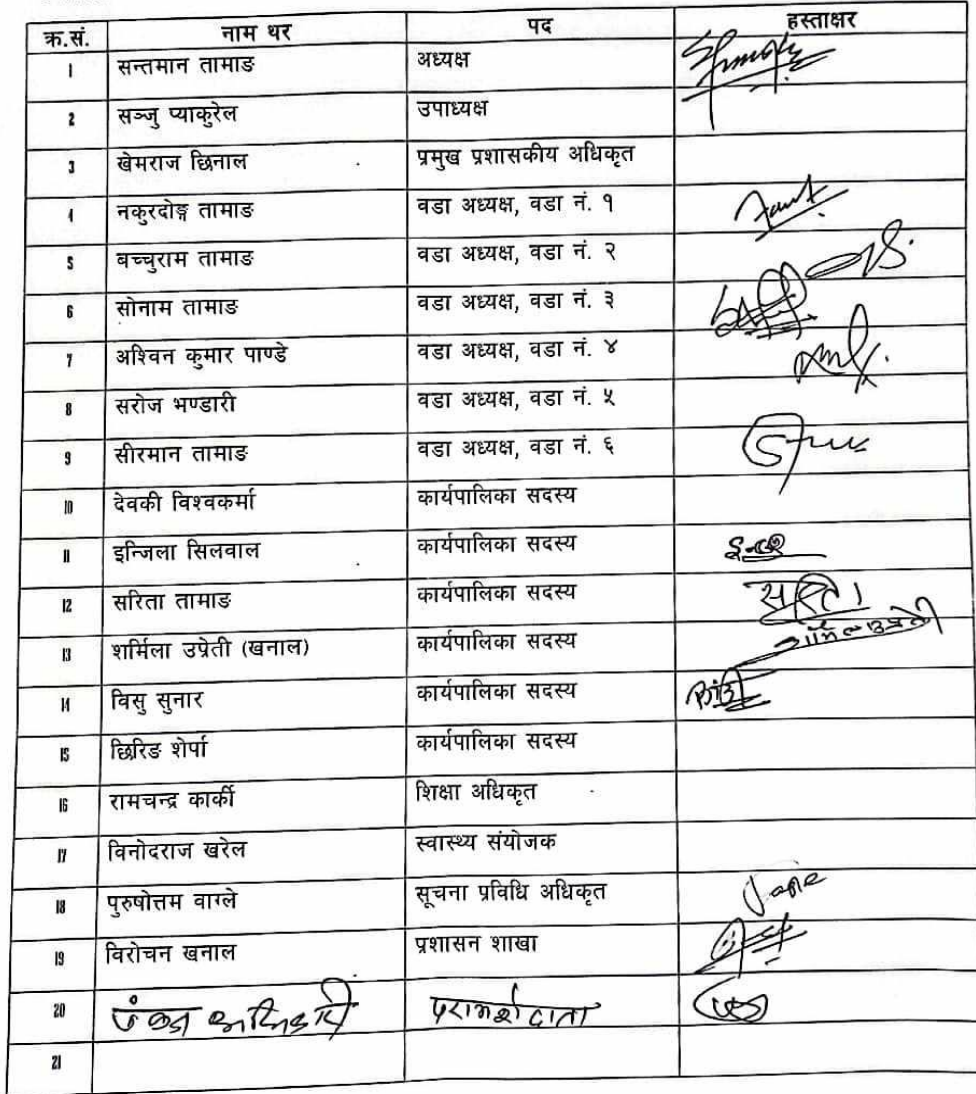 क्र.सं. नाम थर पद हस्ताक्षर
1 सन्तमान तामाङ अध्यक्ष
2 सञ्जु प्याकुरेल उपाध्यक्ष
3 खेमराज छिनाल प्रमुख प्रशासकीय अधिकृत
4 नकुरदोङ्ग तामाङ वडा अध्यक्ष, वडा नं. १
5 बच्चुराम तामाङ वडा अध्यक्ष, वडा नं. २
6 सोनाम तामाङ वडा अध्यक्ष, वडा नं. ३
7 अश्विन कुमार पाण्डे वडा अध्यक्ष, वडा नं. ४
8 सरोज भण्डारी वडा अध्यक्ष, वडा नं. ५
9 सीरमान तामाङ वडा अध्यक्ष, वडा नं. ६
10 देवकी विश्वकर्मा कार्यपालिका सदस्य
11 इन्जिला सिलवाल कार्यपालिका सदस्य
12 सरिता तामाङ कार्यपालिका सदस्य
13 शर्मिला उप्रेती (खनाल) कार्यपालिका सदस्य
14 विसु सुनार कार्यपालिका सदस्य
15 छिरिङ शेर्पा कार्यपालिका सदस्य
16 रामचन्द्र कार्की शिक्षा अधिकृत
17 विनोदराज खरेल स्वास्थ्य संयोजक
18 पुरुषोत्तम वाग्ले सूचना प्रविधि अधिकृत
19 विरोचन खनाल प्रशासन शाखा
20 परामर्श दाता
21